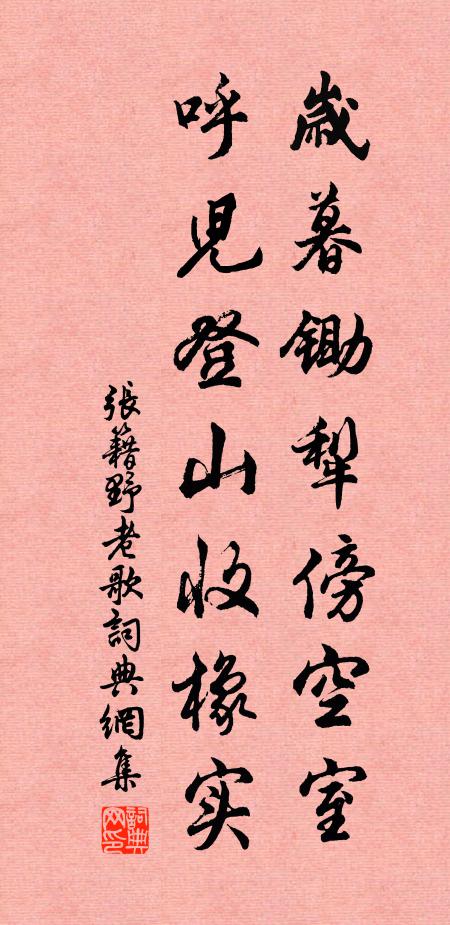 歲暮鋤犁傍空室
呼児登山收橡实
張籍野老歌詞典網集
詞典网印